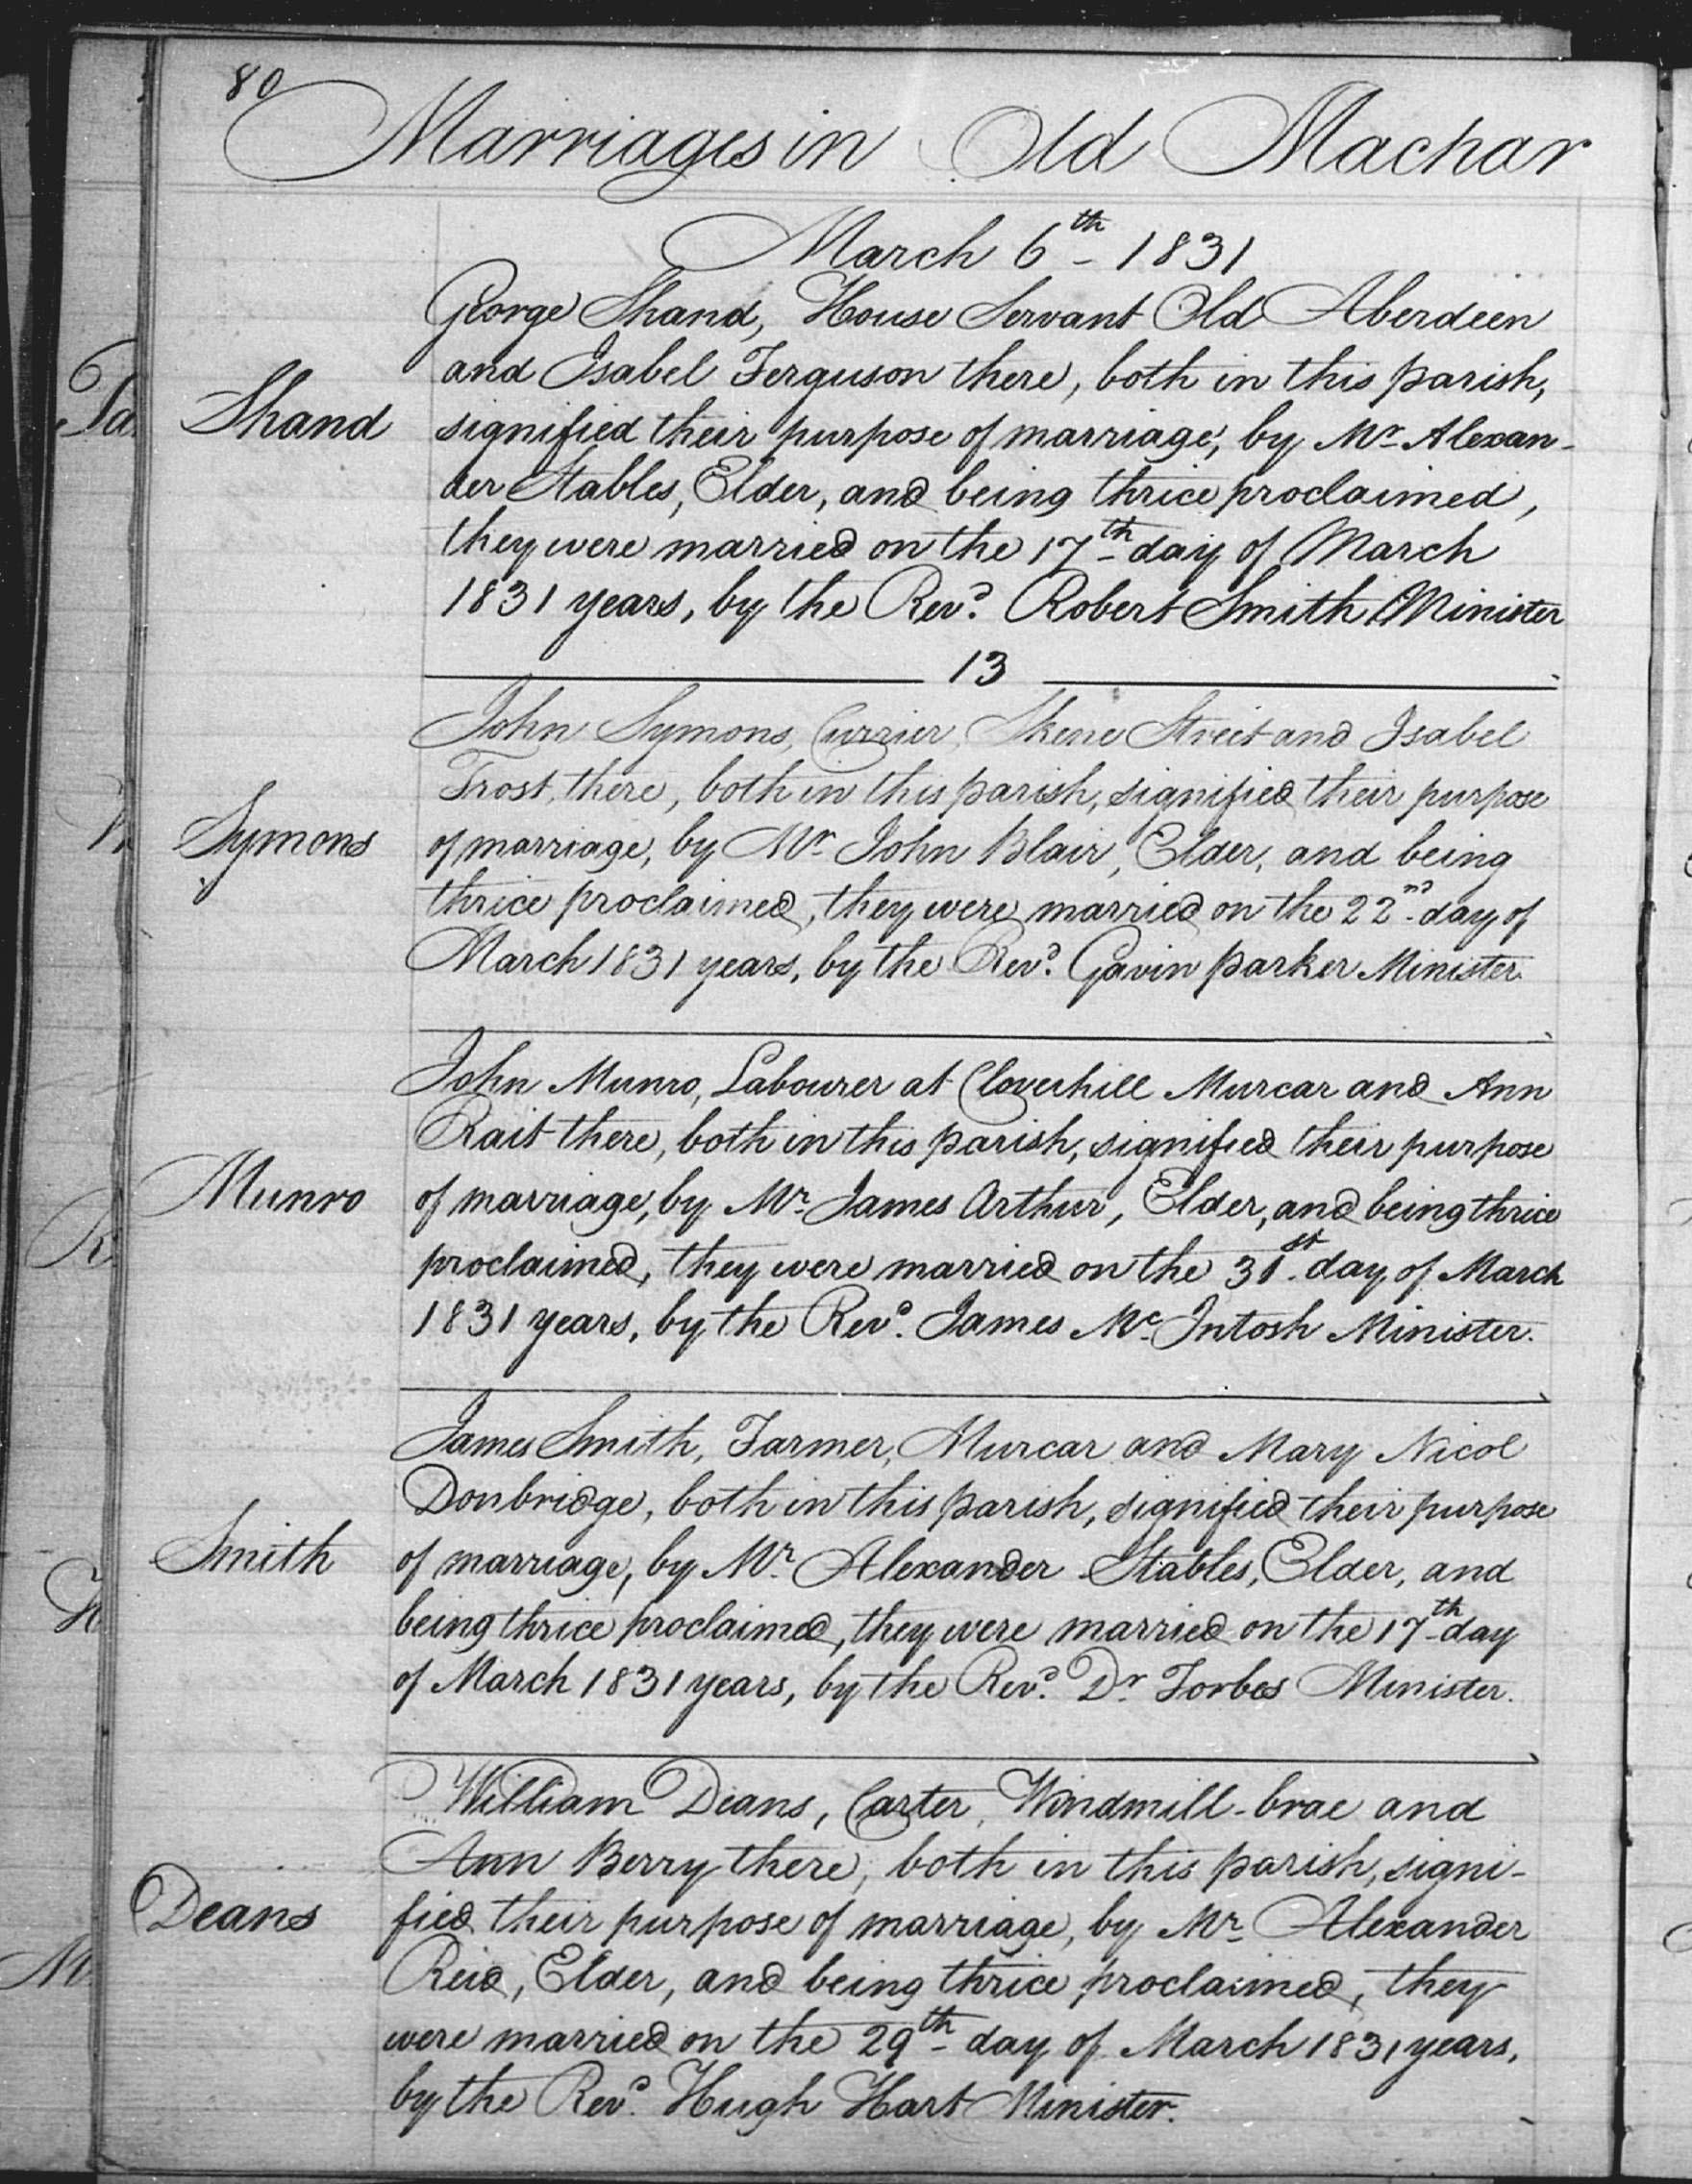 80
Marriages in Old Machar
March 6th 1831
Shand
George Shand, House Servant Old Aberdeen
and Isabel Ferguson there, both in this parish,
signified their purpose of marriage, by Mr Alexan-
der Stables, Elder, and being thrice proclaimed,
they were married on the 17th day of March
1831 years, by the Revd. Robert Smith Minister
13
Symons
John Symons, Currier, Skene Street and Isabel
Frost, there, both in this parish, signified their purpose
of marriage, by Mr John Blair, Elder, and being
thrice proclaimed, they were married on the 22nd day of
March 1831 years, by the Revd. Gavin parker Minister
Munro
John Munro, Labourer at Cloverhill Murcar and Ann
Rait there, both in this parish, signified their purpose
of marriage, by Mr. James Arthur, Elder, and being thrice
proclaimed, they were married on the 31st. day of March
1831 years, by the Revd. James Mc.Intosh Minister.
Smith
James Smith, Farmer, Murcar and Mary Nicol
Donbridge, both in this parish, signified their purpose
of marriage, by Mr. Alexander Stables, Elder, and
being thrice proclaimed, they were married on the 17th day
of March 1831 years, by the Revd. Dr Forbes Minister.
Deans
William Deans, Carter, Windmill-brae and
Ann Berry there, both in this parish, signi-
fied their purpose of marriage, by Mr Alexander
Reid, Elder, and being thrice proclaimed, they
were married on the 29th day of March 1831 years,
by the Revd. Hugh Hart Minister.